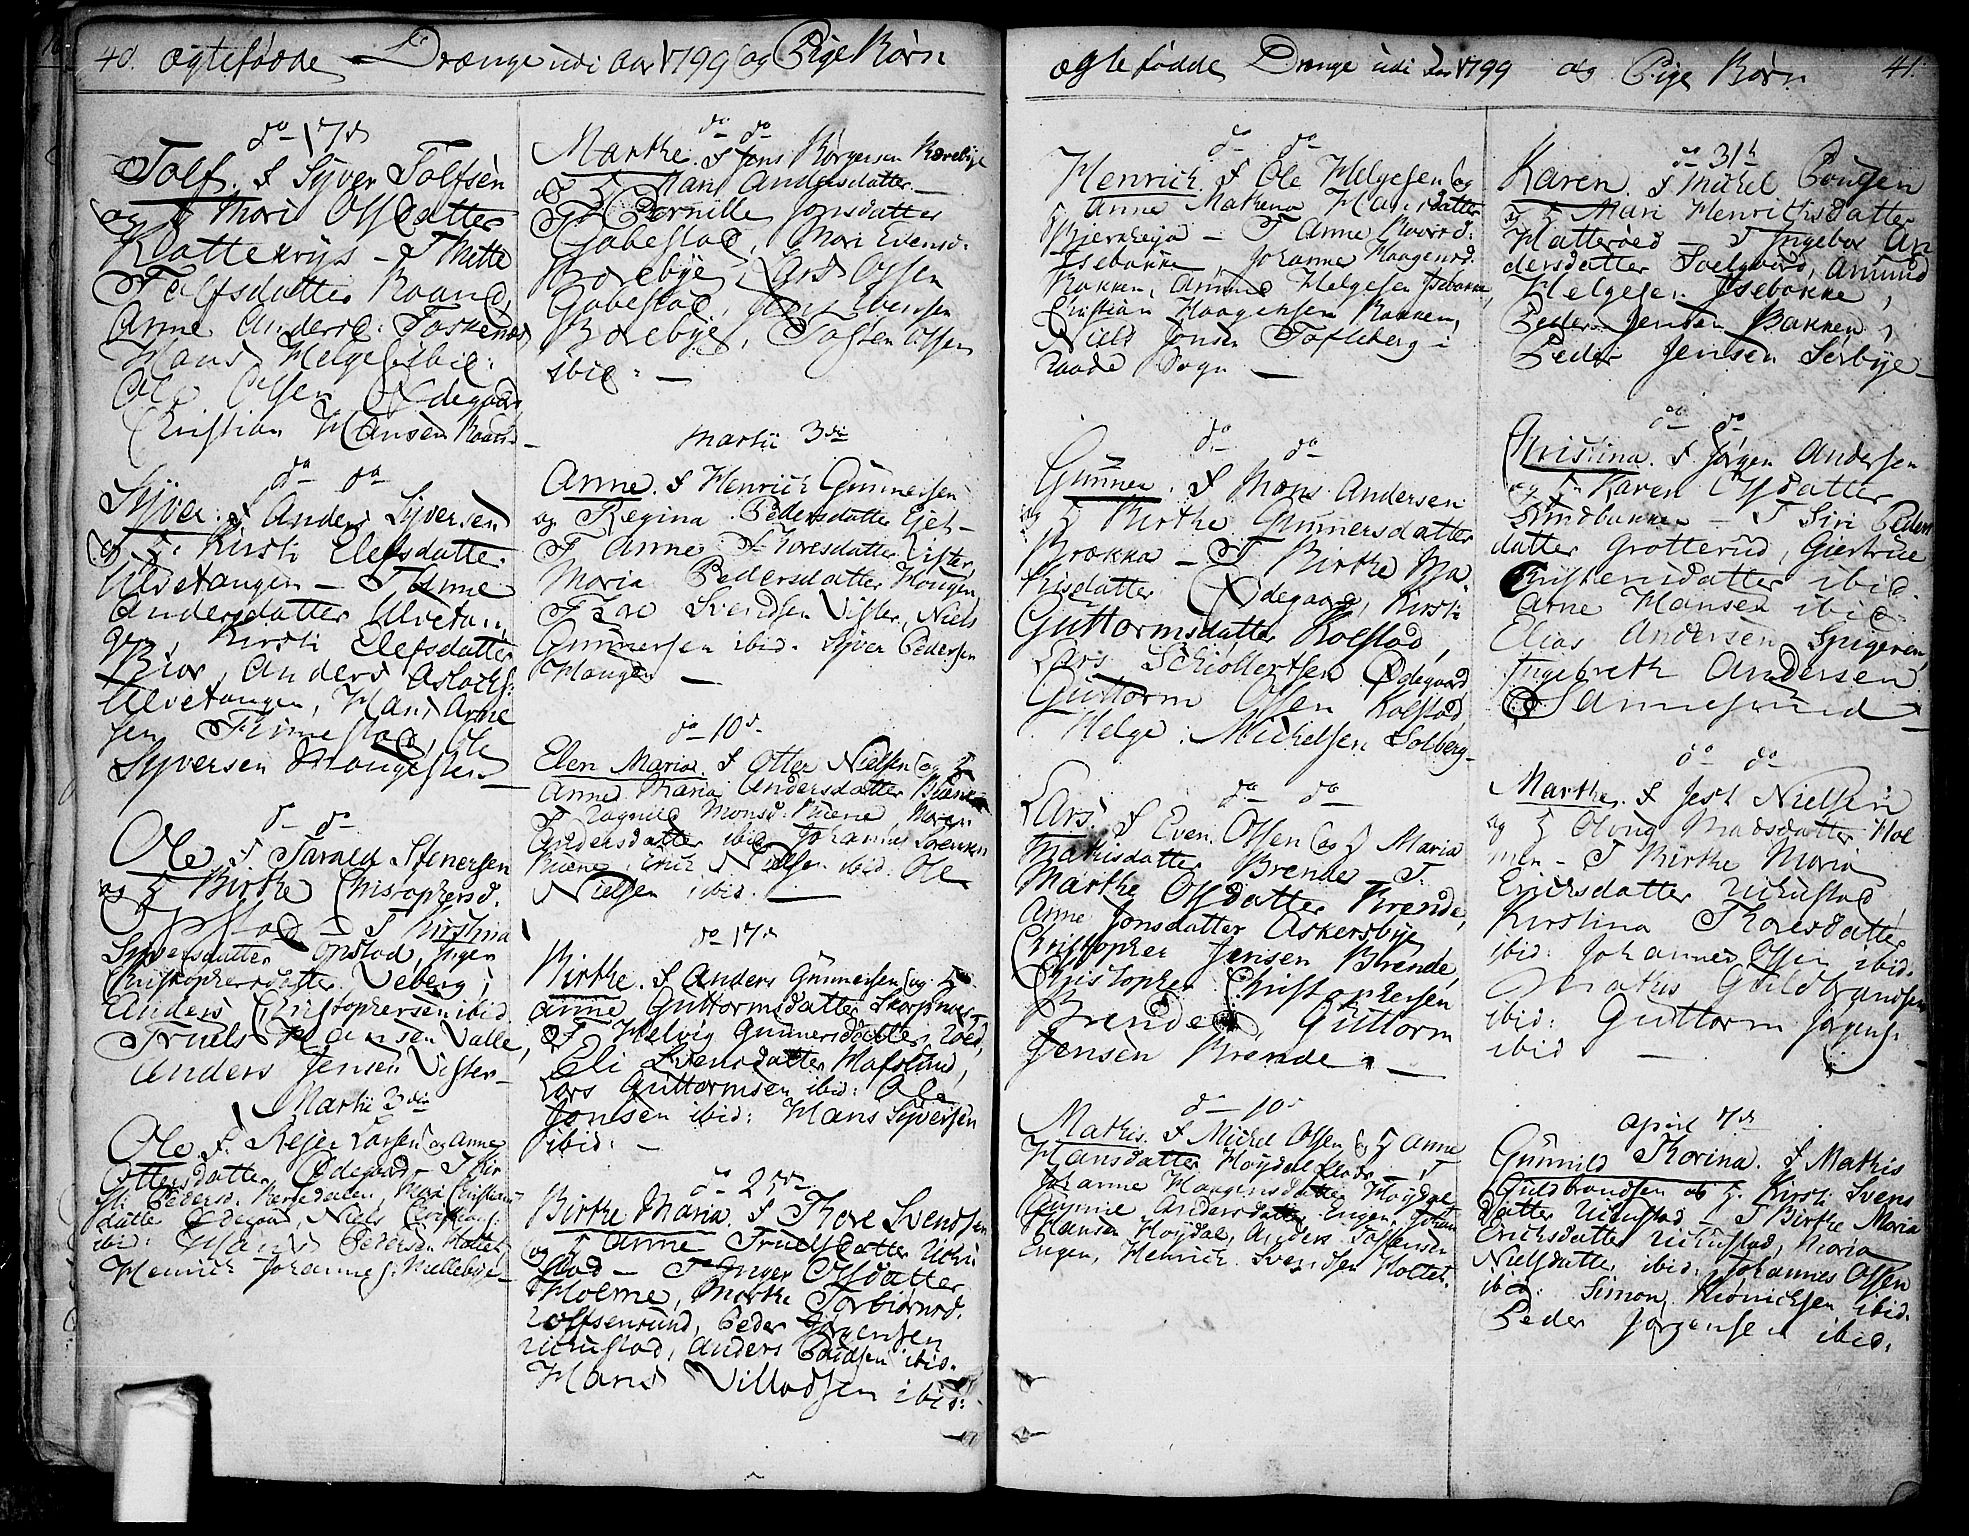 40. ægtefødde Drænge udi Aar 1799 og Pige Børn
do 17d
Tolf. F Syver Tolfsen
og Mari Olsdatter
Klattekrys - T Mitte
Tolfsdatter
Anne Anders:
Hans Helges ibid:
Ole Olsen Ødegaar
Christian Hansen
do do
Syver. F Anders Syversen
og Kirsti Elefsdatter
Ulvetangen - T Anne
Andersdatter Ulvetan
gen, Kirsti Elefsdatter
Anders Aslachs:
Ulvetangen, Hans Arne
sen Finnestad, Ole
Syversen Haugesten
do do
Ole F Tarald Stenersen
og Birthe Chistophersd.
Opstad - T Kirstina
Syversdatter Opstad, Inger
Christophersdatter Veberg,
Anders Christophersen ibid
Truels Hansen Valle,
Anders Jensen Vister
Martii 3die
Ole F. Rejer Larsen og Anne
Ottersdatter Ødegaard T Kir
sti Pedersd. Mari Christians
datter Ødegaard, Niels Christians:
ibid: Hans Pedersen Holtet,
Henrich Johannes: Kullebye
do do
Marthe. F Jens Børgersen
og Kari Andersdatter
T Pernille Jonsdatter
Gabestad, Mari Evensd:
Boxebye, Lars Olsen
Gabestad, Jens Evensen
Boxebye, Tosten Olsen
ibid: -
Martii 3die
Anne. F Henrich Gunnersen
og Regina Pedersdatter
T Anne Thoresdatter Vister,
Maria Pedersdatter Haugen,
Thore Svendsen Vister, Niels
Gunnersen ibid. Syver Pedersen
Haugen -
do 10d
Elen Maria. F Otter Nielsen og
Anne Maria Andersdatter Buene
T Ragnild Monsd. Buene, Maren
Andersdatter ibid. Johannes Sørensen
Buene, Erich Nielsen ibid. Ole
Nielsen ibid. -
do 17d
Birthe. F Anders Gunnersen og
Anne Guttormsdatter
T Helvig Gunnersdatter Roed,
Eli Svensdatter Hafslund,
Lars Guttormsen ibid: Ole
Jonsen ibid: Hans Syversen
ibid: -
do 25de
Birthe Maria. F Thore Svendsen
og Anne Truelsdatter Uchu
stad - T Inger Olsdatter
Holme, Marthe Torbiørnsd.
Rolfsenrund, Peder Jørgensen
Uchustad, Anders Poulsen ibid.
Hans Villadsen ibid:
ægte fødde Drenge udi Aar 1799 og Pige Børn 41.
do do
Henrich. F Ole Helgesen og
Anne Mathea Hansdatter
T Anne
Isebakke, Johanne Haagensd.
Bakken, Amund Helgesen Isebakke,
Christian Haagensen Bakken,
Niels Jonsen Tofteberg i
Raade Sogn -
do do
Gunner. F Mons Andersen
og Birthe Gunnersdatter
Brække - T Birthe Ma
thisdatter Ødegaard, Kirsti
Guttormsdatter Kolstad,
Lars Schiollertsen Ødegaard
Guttorm Olsen Kolstad,
Helge Michelsen Solberg
do do
Lars F Even Olsen og Maria
Mathisdatter Brende - T
Marthe Olsdatter Brende,
Anne Jonsdatter Askersbye,
Christopher Jensen Brende,
Christopher Christophersen
Brende, Guttorm
Jensen Brende. -
do 10d
Mathis. F Michel Olsen og Anne
Hansdatter Høydal - T
Johanne Haagensdatter Høydal
Gunnie Andersdatter Engen, Johan
Hansen Høydal, Anders Tostensen
Engen, Henrich Svendsen Holtet.
do 31te
Karen. F Michel Poulsen
og Mari Henrichsdatter
Hatterøed - T Ingebor An
dersdatter Amund
Helgesen Isebakke,
Peder Jensen Bakken,
Peder Jensen Serbye -
do do
Christina. F Jørgen Andersen
og Karen Olsdatter
Sandbakken - T Siri Peders
datter Grotterud, Giertrue
Christensdatter ibid.
Arne Hansen ibid
Elias Andersen Spigeren,
Ingebreth Andersen
Sannesund -
do do
Marthe. F Jest Nielsen
og Oloug Madsdatter Hol
men - T Birthe Maria
Erichsdatter Uchustad,
Kirstina Thoresdatter
ibid: Johannes Olsen ibid.
Mathis Guldbrandsen
ibid: Guttorm Jørgens:
ibid -
April 7d
Gunnild Thorina. F Mathis
Guldbrandsen og Kirsti Svens
datter Uchustad - T Birthe Maria
Erichsdatter Uchustad, Maria
Nielsdatter ibid: Johannes Olsen
ibid: Simon Hennichsen ibid.
Peder Jørgensen ibid.